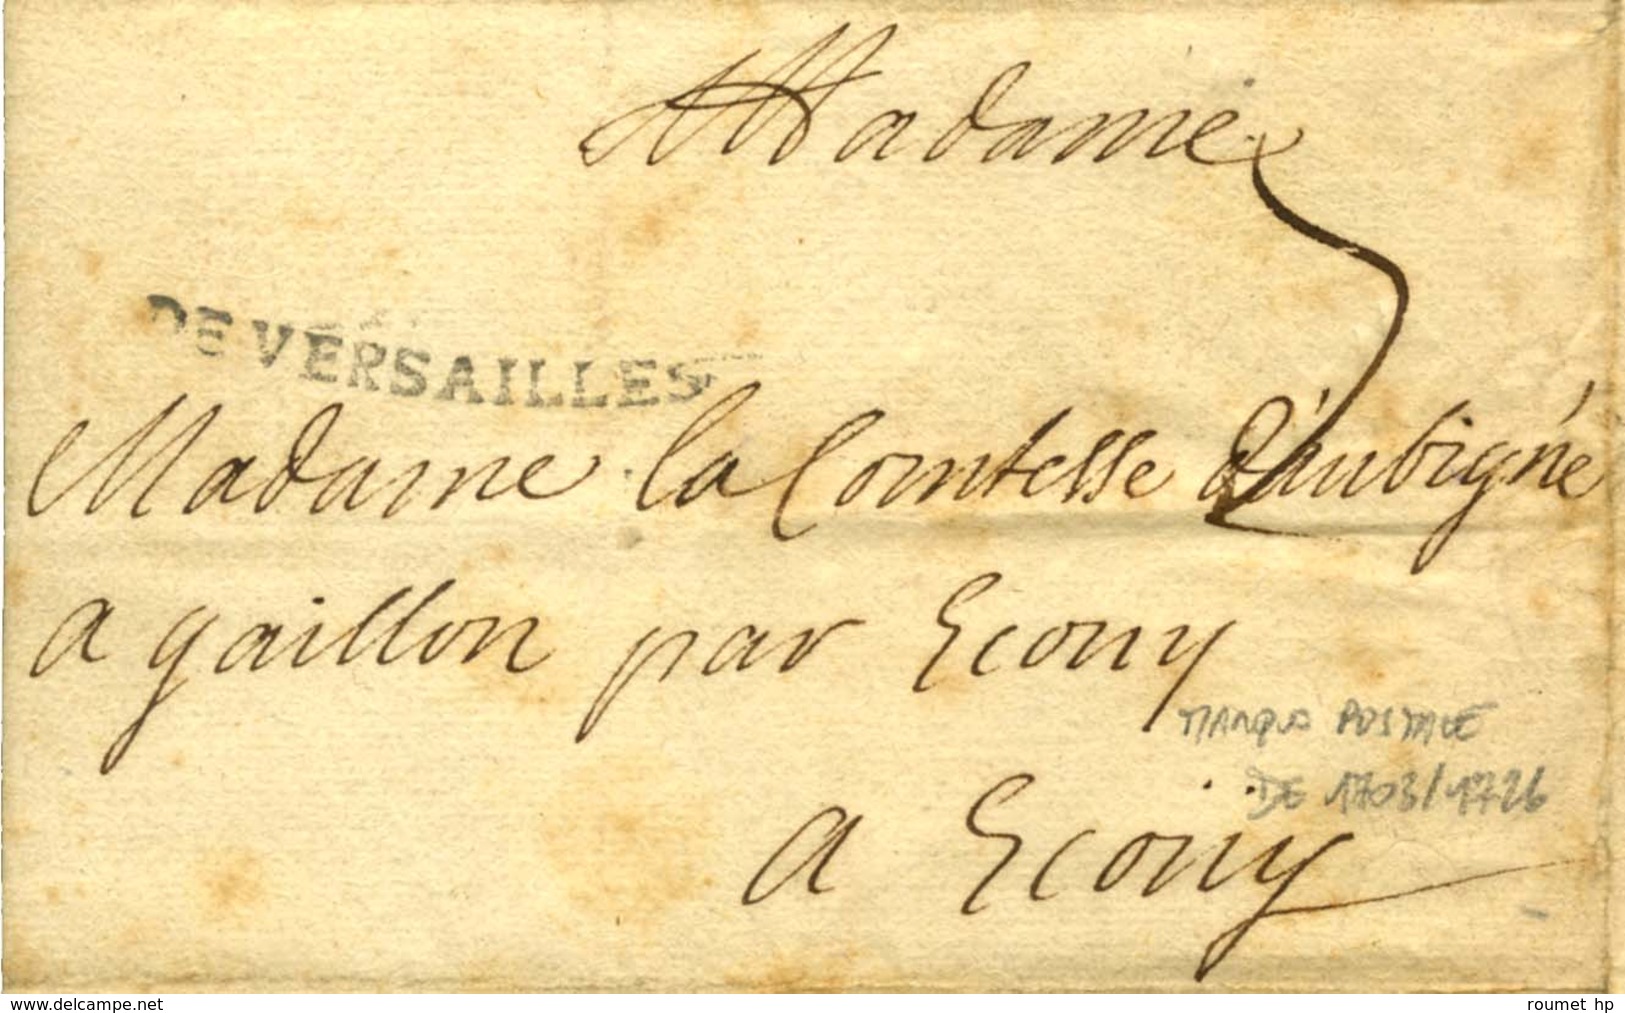 Madame
DE VERSAILLES
Madame la Comtesse d'aubigné
a gaillon par Ecouy
MARQUE POSTALE
DE 1703/1726
a Ecouy
www.delcampe.net
roumet hp